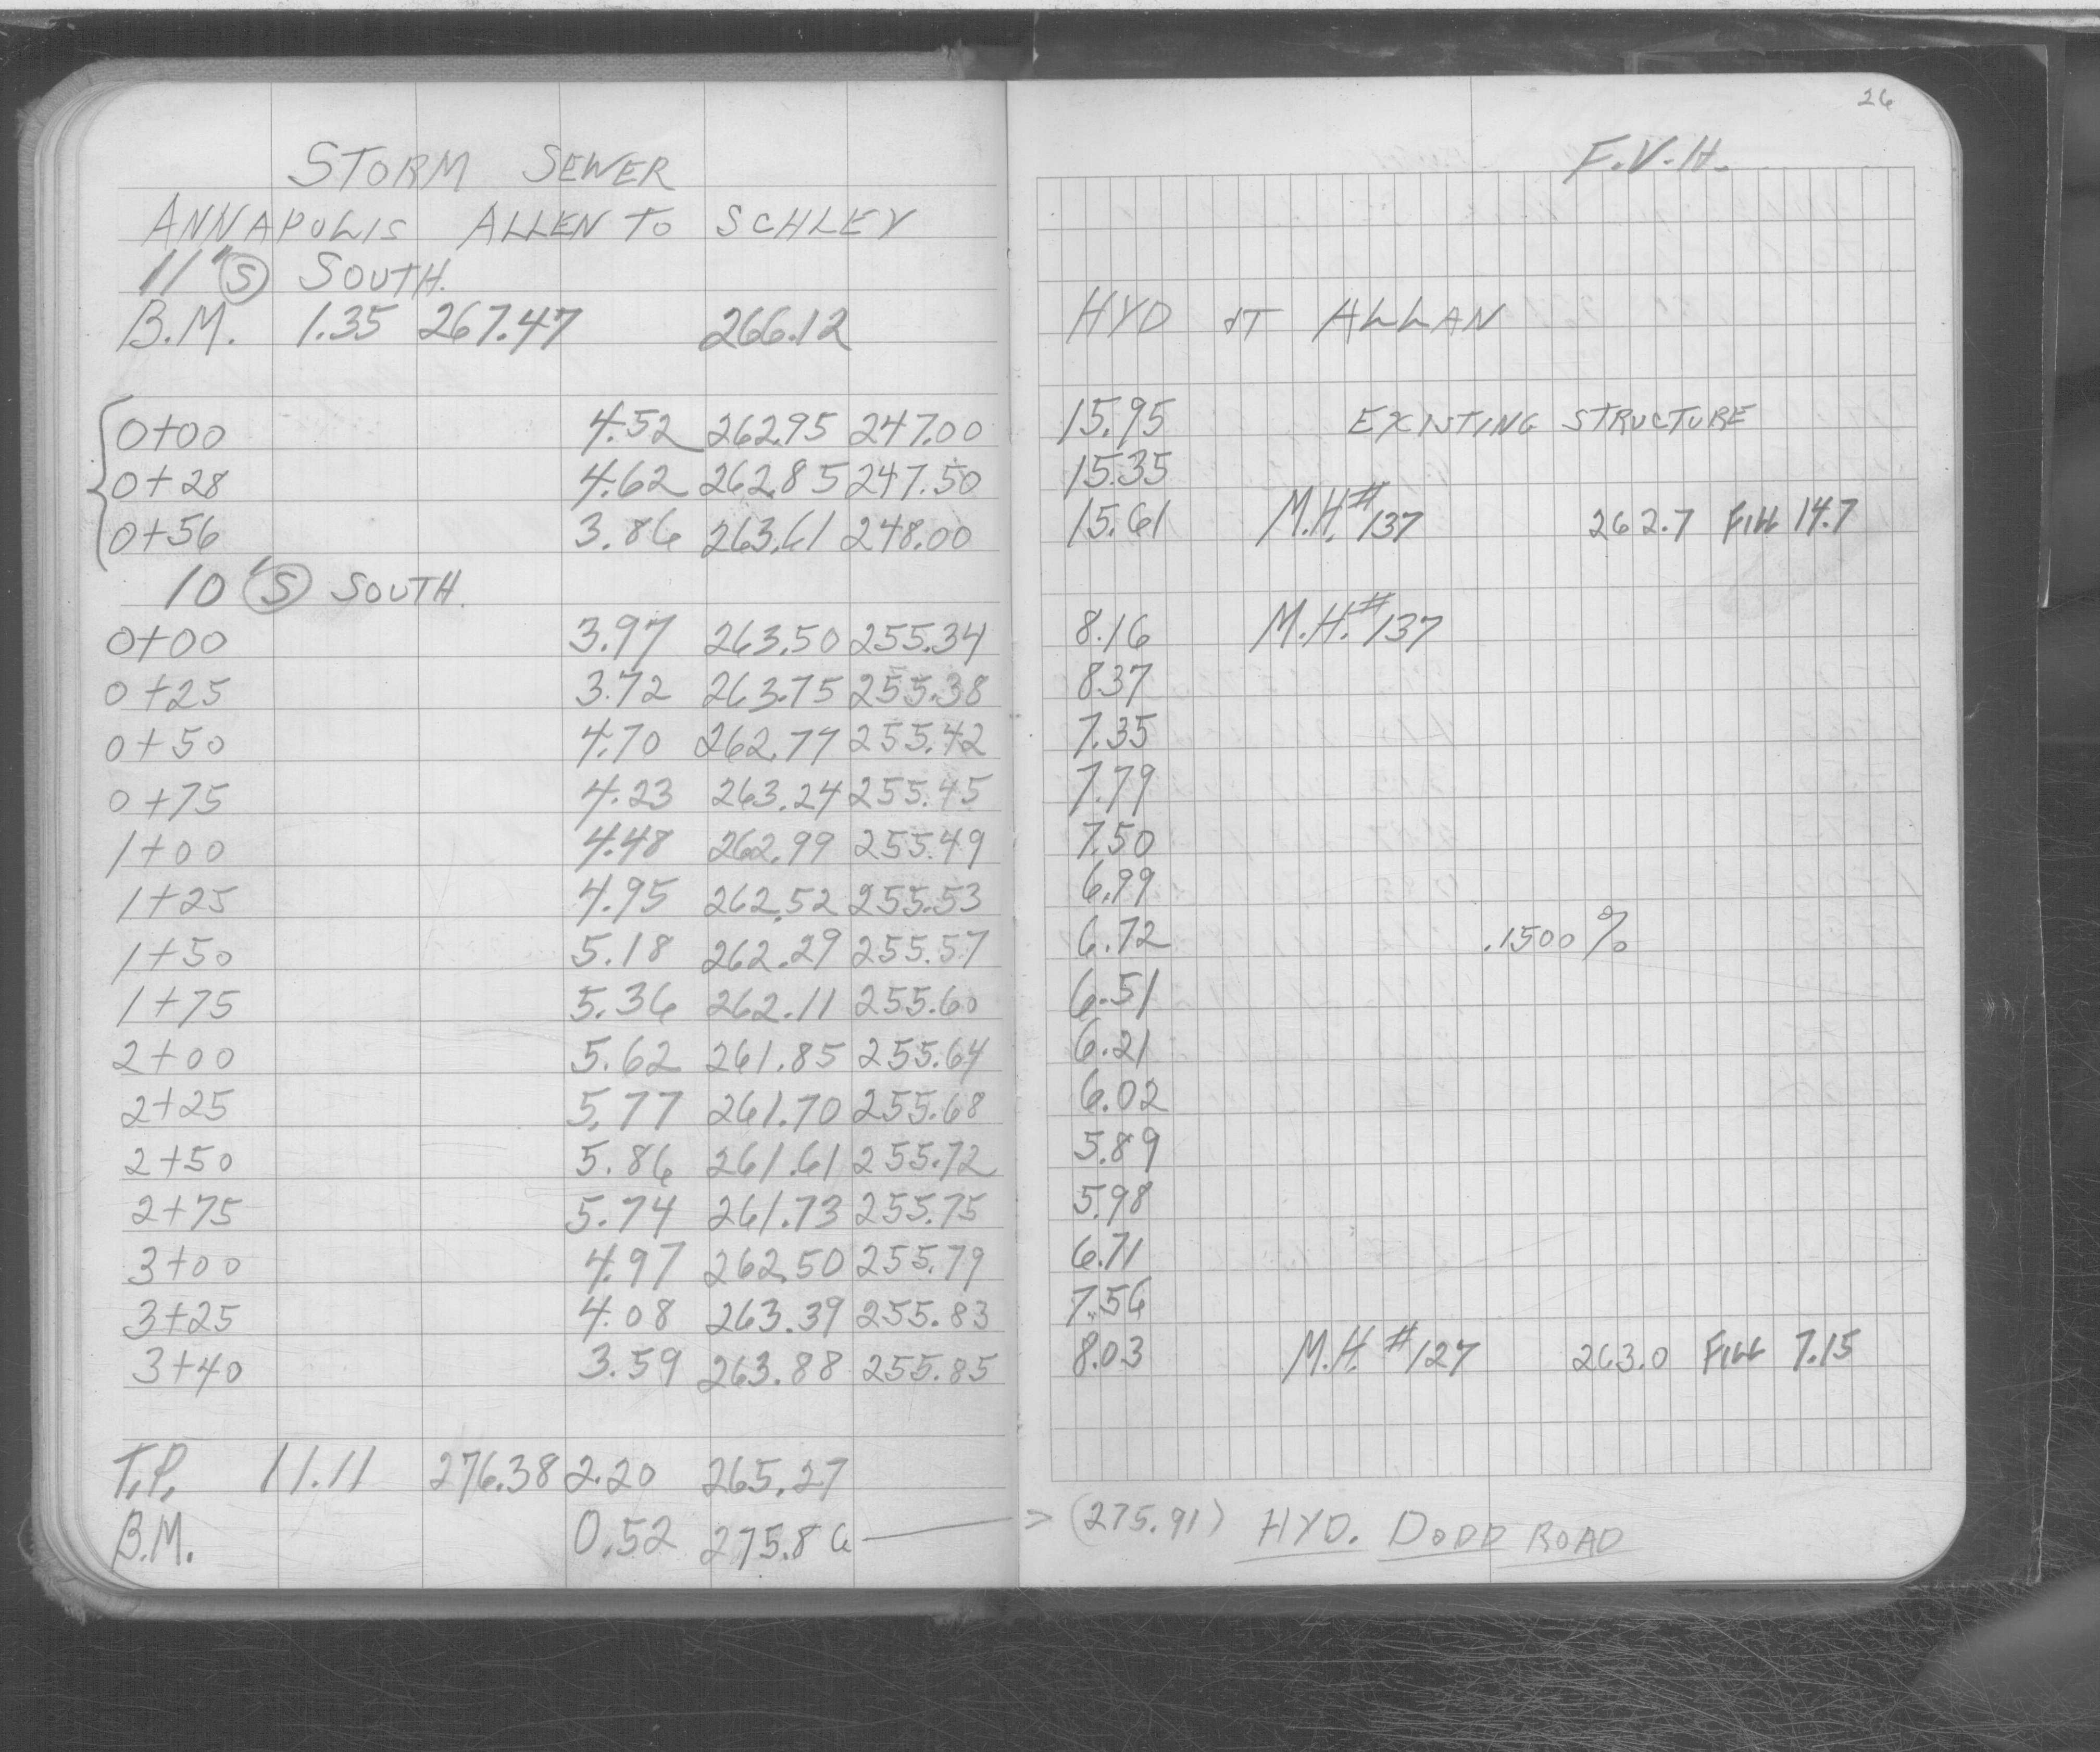 26
STORM SEWER F.V.H.
ANNAPOLIS ALLEN TO SCHLEY
11' Ⓢ SOUTH.
B.M. 1.35 267.47 266.12 HYD AT ALLAN
0+00 4.52 262.95 247.00 15.95 EXISTING STRUCTURE
0+28 4.62 262.85 247.50 15.35
0+56 3.86 263.61 248.00 15.61 M.H.#137 262.7 FILL 14.7
10' Ⓢ SOUTH.
0+00 3.97 263.50 255.34 8.16 M.H.#137
0+25 3.72 263.75 255.38 8.37
0+50 4.70 262.77 255.42 7.35
0+75 4.23 263.24 255.45 7.79
1+00 4.48 262.99 255.49 7.50
1+25 4.95 262.52 255.53 6.99
1+50 5.18 262.29 255.57 6.72 .1500%
1+75 5.36 262.11 255.60 6.51
2+00 5.62 261.85 255.64 6.21
2+25 5.77 261.70 255.68 6.02
2+50 5.86 261.61 255.72 5.89
2+75 5.74 261.73 255.75 5.98
3+00 4.97 262.50 255.79 6.71
3+25 4.08 263.39 255.83 7.56
3+40 3.59 263.88 255.85 8.03 M.H. #127 263.0 FILL 7.15
T.P. 11.11 276.38 2.20 265.27
B.M. 0.52 275.86 > (275.91) HYD. DODD ROAD